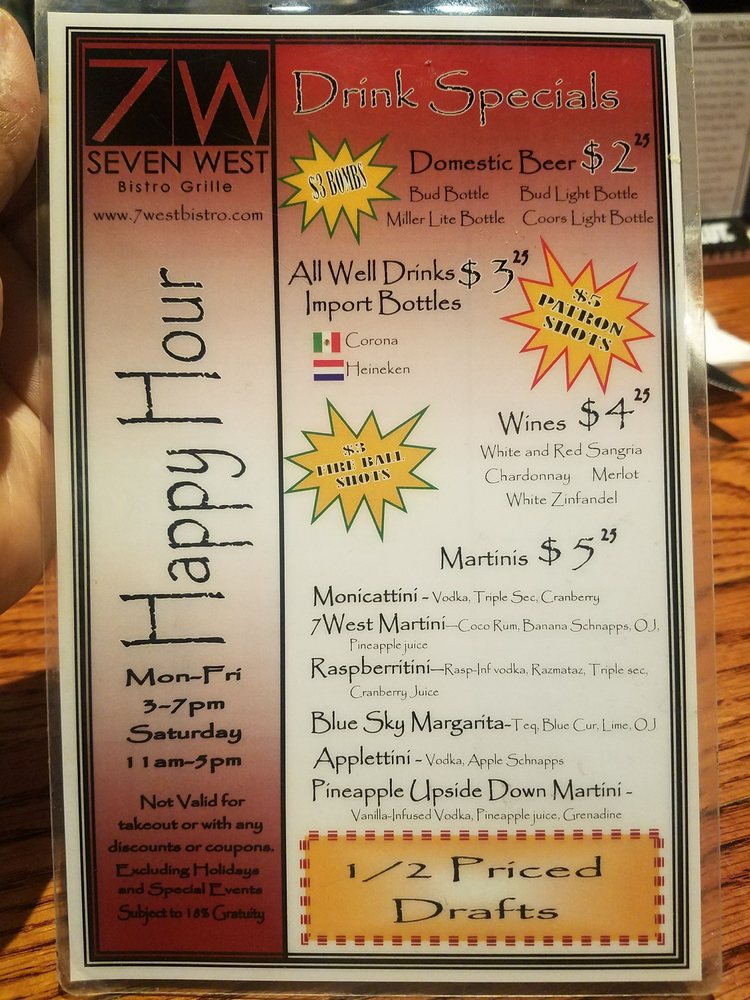 7W
SEVEN WEST
Bistro Grille
www.7westbistro.com
Happy Hour
Mon-Fri
3-7pm
Saturday
11am-5pm
Not Valid for
takeout or with any
discounts or coupons.
Excluding Holidays
and Special Events
Subject to 18% Gratuity
Drink Specials
$3 BOMBS
Domestic Beer $2 25
Bud Bottle Bud Light Bottle
Miller Lite Bottle Coors Light Bottle
All Well Drinks $3 25
Import Bottles
Corona
Heineken
$5
PATRON
SHOTS
Wines $4 25
White and Red Sangria
Chardonnay Merlot
White Zinfandel
$3
FIRE BALL
SHOTS
Martinis $5 25
Monicattini - Vodka, Triple Sec, Cranberry
7West Martini—Coco Rum, Banana Schnapps, OJ,
Pineapple juice
Raspberritini—Rasp-Inf vodka, Razmataz, Triple sec,
Cranberry Juice
Blue Sky Margarita-Teq, Blue Cur, Lime, OJ
Applettini - Vodka, Apple Schnapps
Pineapple Upside Down Martini -
Vanilla-Infused Vodka, Pineapple juice, Grenadine
1/2 Priced
Drafts